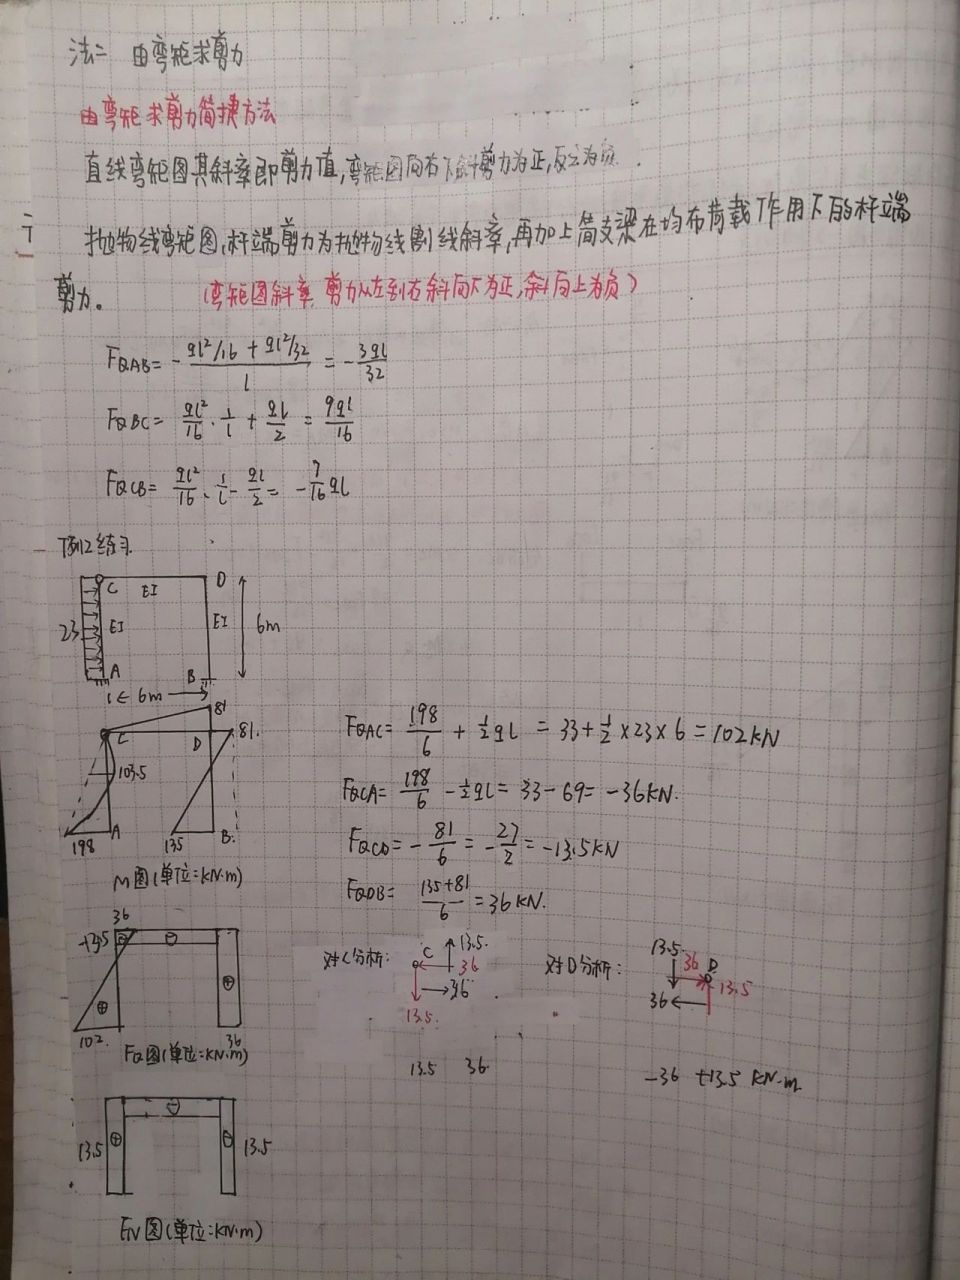 法二 由弯矩求剪力
由弯矩求剪力简捷方法
直线弯矩图其斜率即剪力值,弯矩图向右下斜剪力为正,反之为负.
抛物线弯矩图,杆端剪力为抛物线割线斜率,再加上简支梁在均布荷载作用下的杆端
剪力。 (弯矩图斜率,剪力从左到右斜向下为正,斜向上为负)
FQAB= -(ql²/16 + ql²/32)/l = -3ql/32
FQBC= ql²/16 · 1/l + ql/2 = 9ql/16
FQCB= ql²/16 · 1/l - ql/2 = -7/16 ql
例2练习
C EI D
23 EI EI 6m
A B
6m
81
C D 81.
103.5
198 A 135 B.
M图(单位:kN·m)
FQAC= 198/6 + ½ql = 33+½×23×6=102kN
FQCA= 198/6 - ½ql= 33-69= -36kN.
FQCD= -81/6 = -27/2 = -13.5kN
FQDB= (135+81)/6 = 36kN.
36
13.5 ⊖ ⊖
⊕ ⊕
102. 36
FQ图(单位:kN·m)
对C分析: C 13.5.
36
36
13.5.
对D分析: 13.5 36 D
36 13.5
13.5 36
-36 +13.5 kN·m
⊖
13.5 ⊕ ⊖ 13.5
FN图(单位:kN·m)